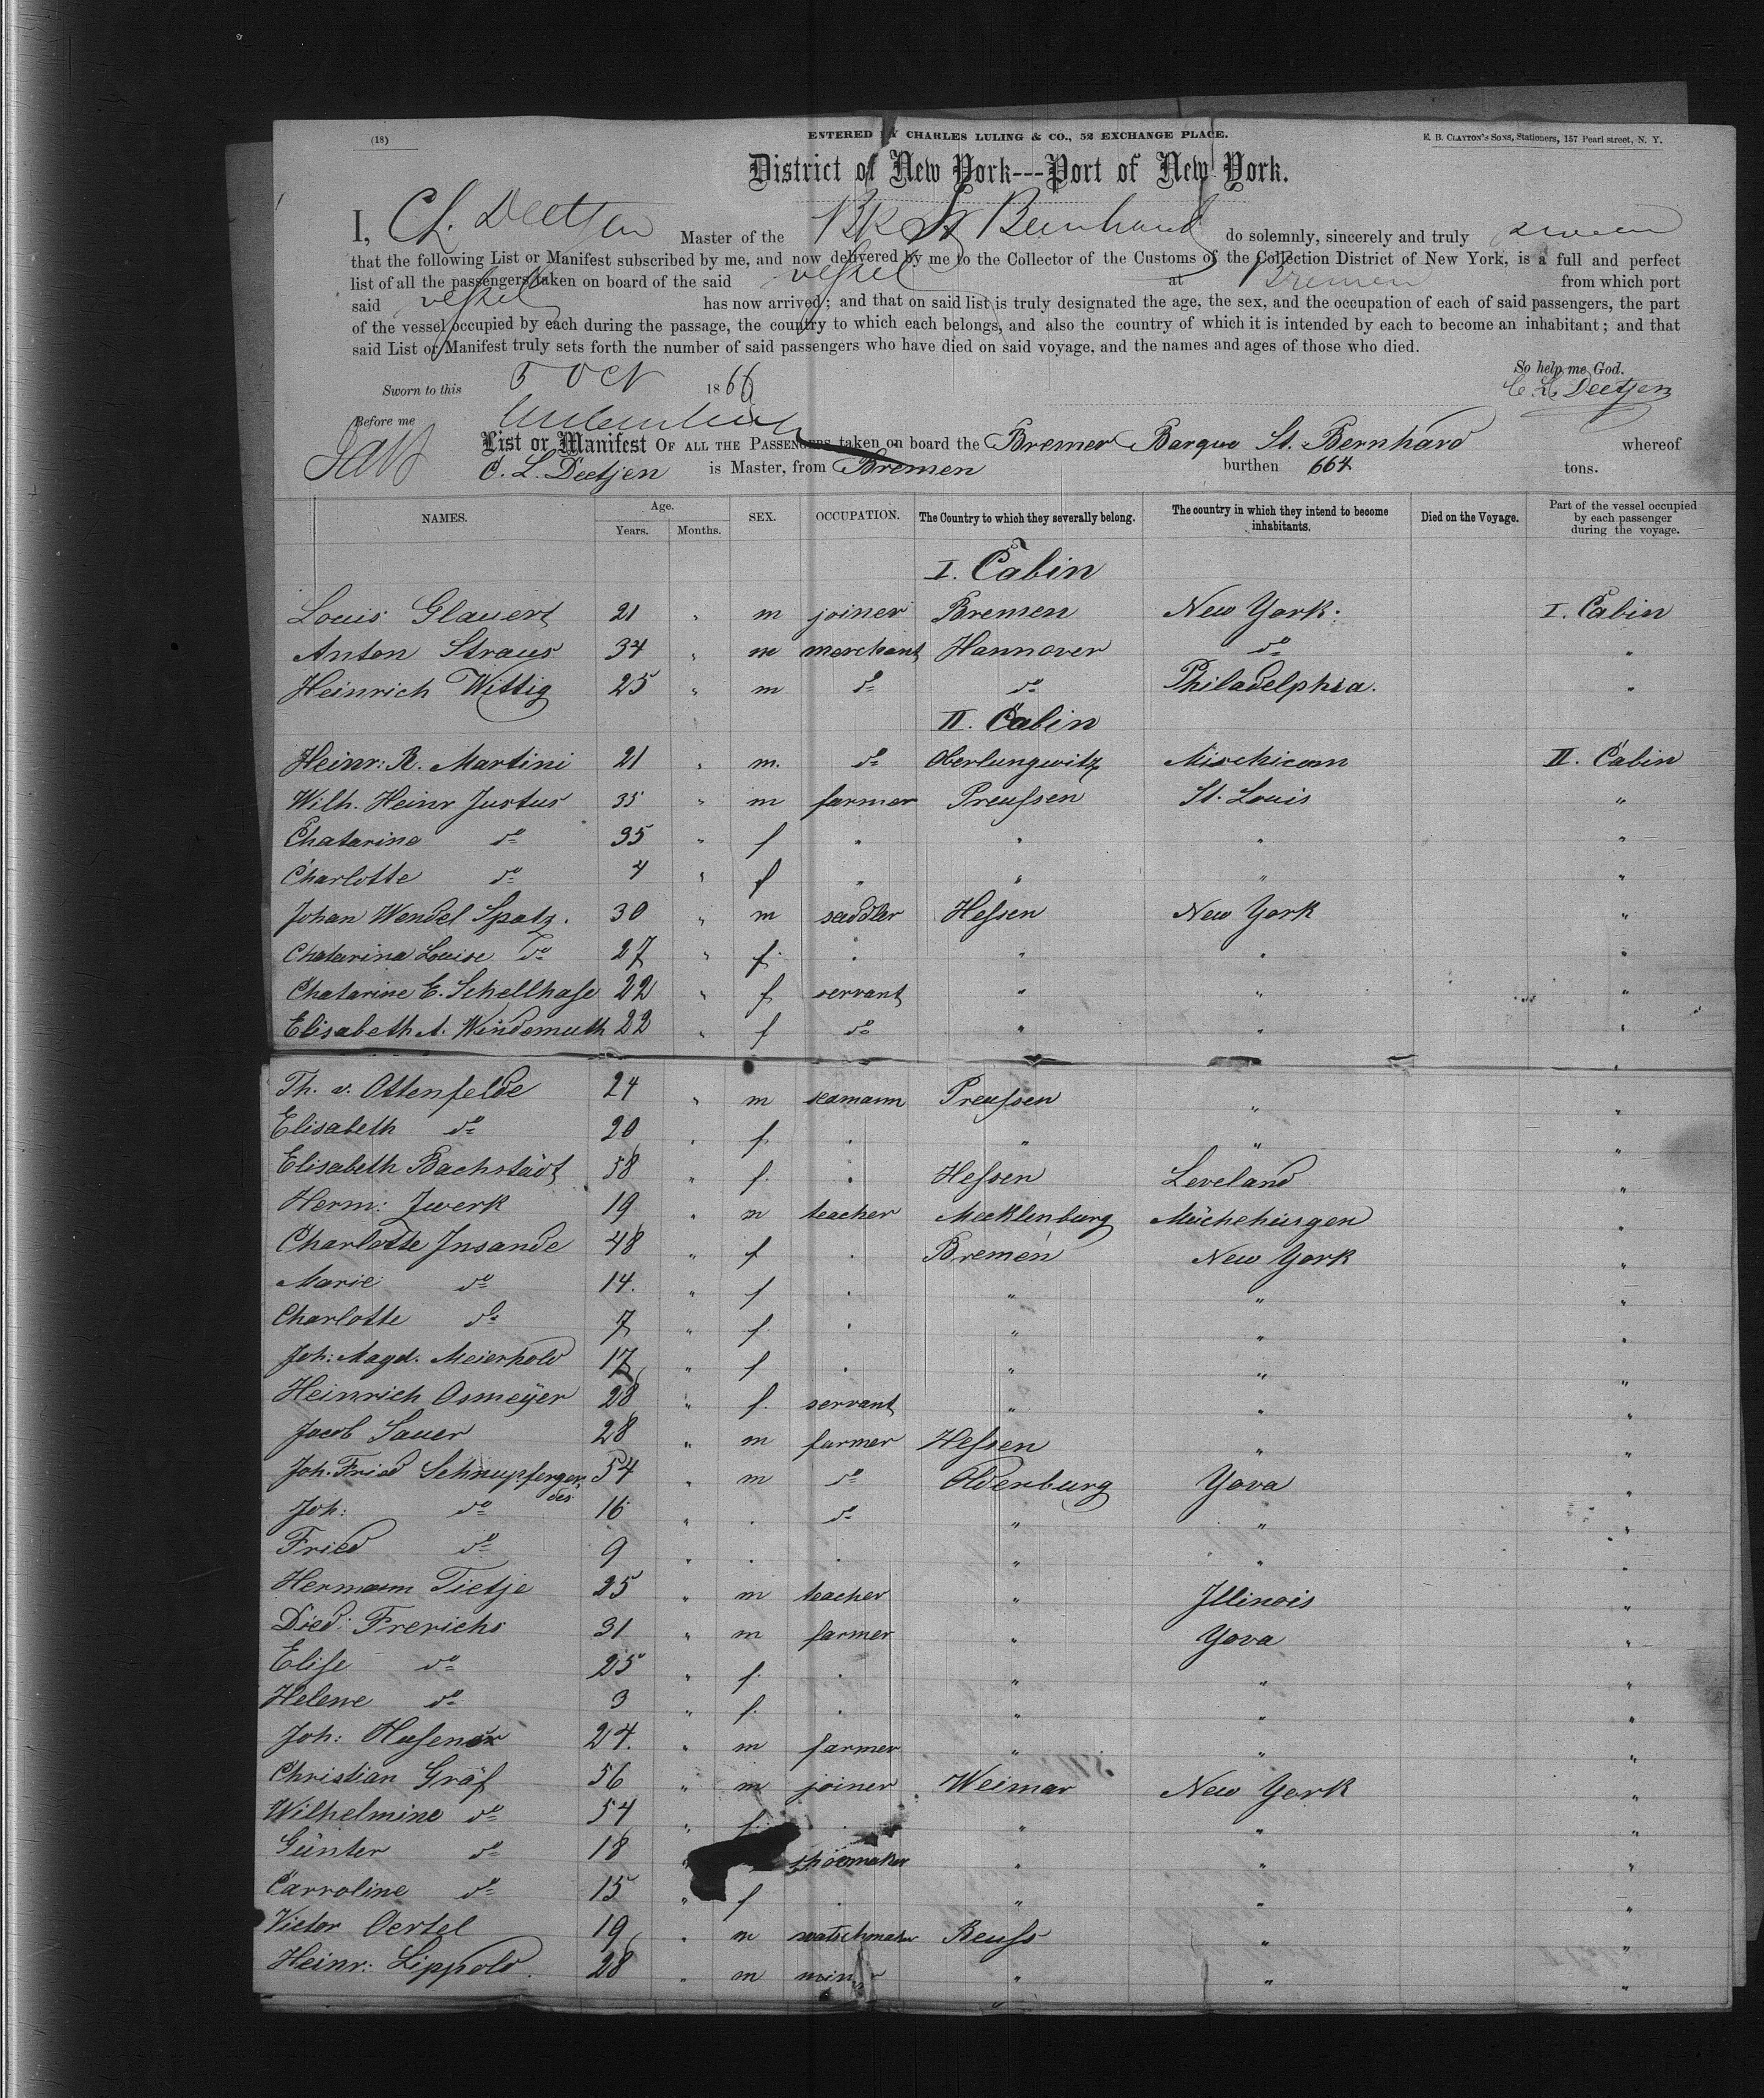 (18)
ENTERED BY CHARLES LULING & CO., 52 EXCHANGE PLACE.
E. B. CLAYTON'S SONS, Stationers, 157 Pearl street, N. Y.
District of New York---Port of New York.
I, Ch. Deetjen Master of the Bk St Bernhard do solemnly, sincerely and truly swear
that the following List or Manifest subscribed by me, and now delivered by me to the Collector of the Customs of the Collection District of New York, is a full and perfect
list of all the passengers taken on board of the said vessel at Bremen from which port
said vessel has now arrived; and that on said list is truly designated the age, the sex, and the occupation of each of said passengers, the part
of the vessel occupied by each during the passage, the country to which each belongs, and also the country of which it is intended by each to become an inhabitant; and that
said List or Manifest truly sets forth the number of said passengers who have died on said voyage, and the names and ages of those who died.
So help me God.
Sworn to this 5 Oct 1866 C. L. Deetjen
Before me
List or Manifest OF ALL THE PASSENGERS taken on board the Bremer Barque St. Bernhard whereof
C. L. Deetjen is Master, from Bremen burthen 664 tons.
NAMES. Age. Years. Months. SEX. OCCUPATION. The Country to which they severally belong. The country in which they intend to become inhabitants. Died on the Voyage. Part of the vessel occupied by each passenger during the voyage.
I. Cabin
Louis Glauert 21 " m joiner Bremen New York. I. Cabin
Anton Straus 34 " m merchant Hannover do "
Heinrich Wittig 25 " m do do Philadelphia. "
II. Cabin
Heinr: R. Martini 21 " m. do Oberlungwitz Mischican II. Cabin
Wilh. Heinr Justus 35 " m farmer Preussen St. Louis "
Chatarine do 35 " f " " " "
Charlotte do 4 " f " " " "
Johan Wendel Spatz. 30 " m saddler Hessen New York "
Chatarina Louise do 27 " f. " " " "
Chatarine E. Schellhase 22 " f servant " " "
Elisabeth A. Windemuth 22 " f do " " "
Th. v. Ottenfelde 24 " m seamann Preussen " "
Elisabeth do 20 " f. " " " "
Elisabeth Bachstädt 58 " f. " Hessen Leveland "
Herm: Zwerk 19 " m teacher Mecklenburg Müchehirgen "
Charlotte Insande 48 " f " Bremen New York "
Marie do 14. " f " " " "
Charlotte do 7 " f. " " " "
Joh: Magd. Meierhold 17 " f " " " "
Heinrich Osmeÿer 28 " f. servant " " "
Jacob Sauer 28 " m farmer Hessen " "
Joh. Fried Schnupfergerdes 54 " m do Oldenburg Yova "
Joh: do 16 " " do " " "
Fried do 9 " " " " " "
Hermann Tietje 25 " m teacher " Illinois "
Died: Frerichs 31 " m farmer " Yova "
Elise do 25 " f. " " " "
Helene do 3 " f. " " " "
Joh: 24. " m farmer " " "
Christian Gräf 56 " m joiner Weimar New York "
Wilhelmine do 54 " f. " " " "
Günter do 18 " shoemaker " " "
Carroline do 15 " f " " " "
Victor Oertel 19 " m watschmaker Reuss " "
Heinr: Lippold. 28 " m " " "